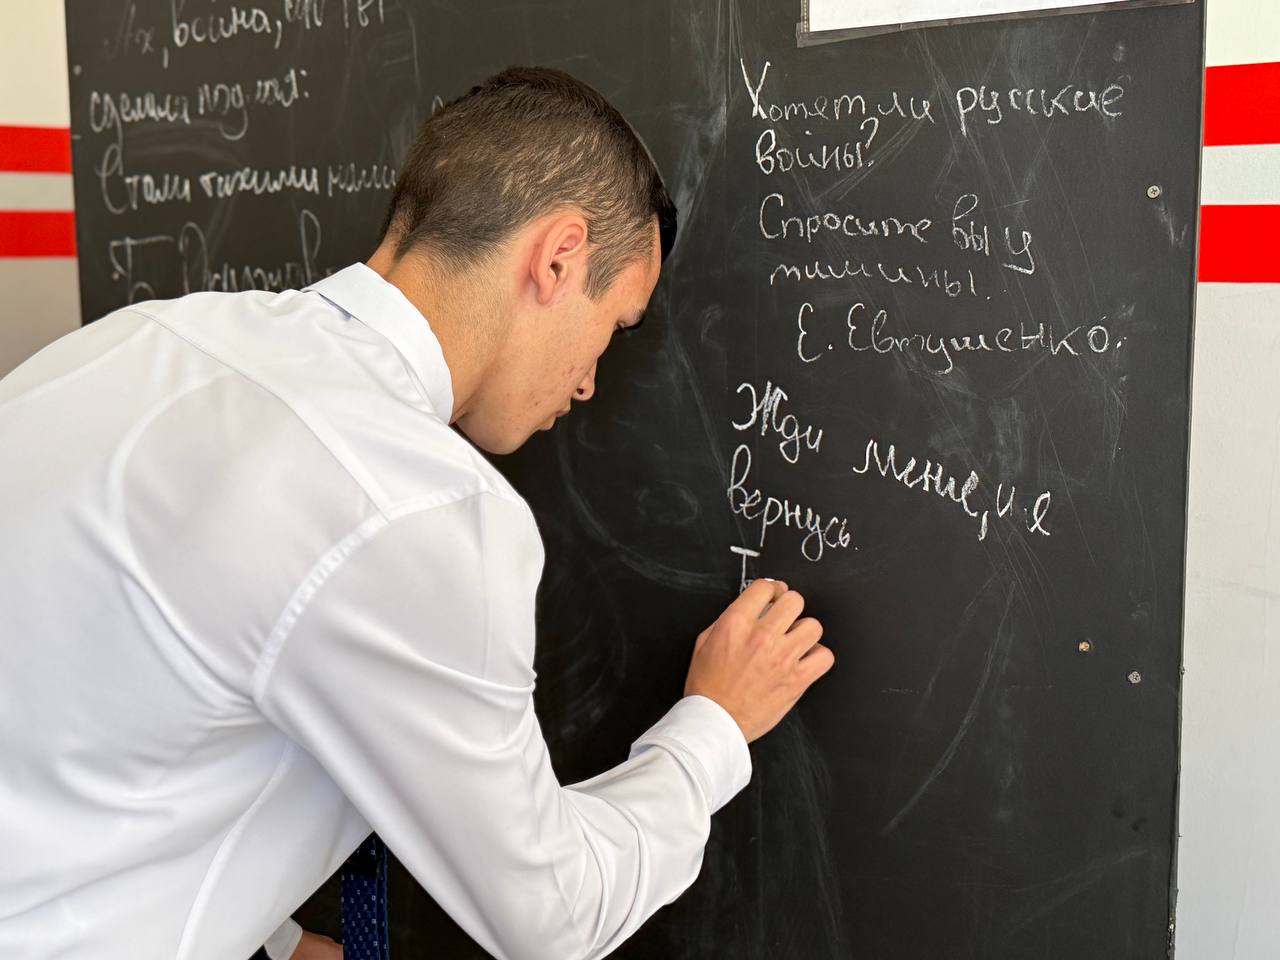 Ах, война, что ты
сделала подлая:
Стали тихими наши
Б. Окуджава
Хотят ли русские
войны?
Спросите вы у
тишины.
Е. Евтушенко.
Жди меня, и я
вернусь.
Т